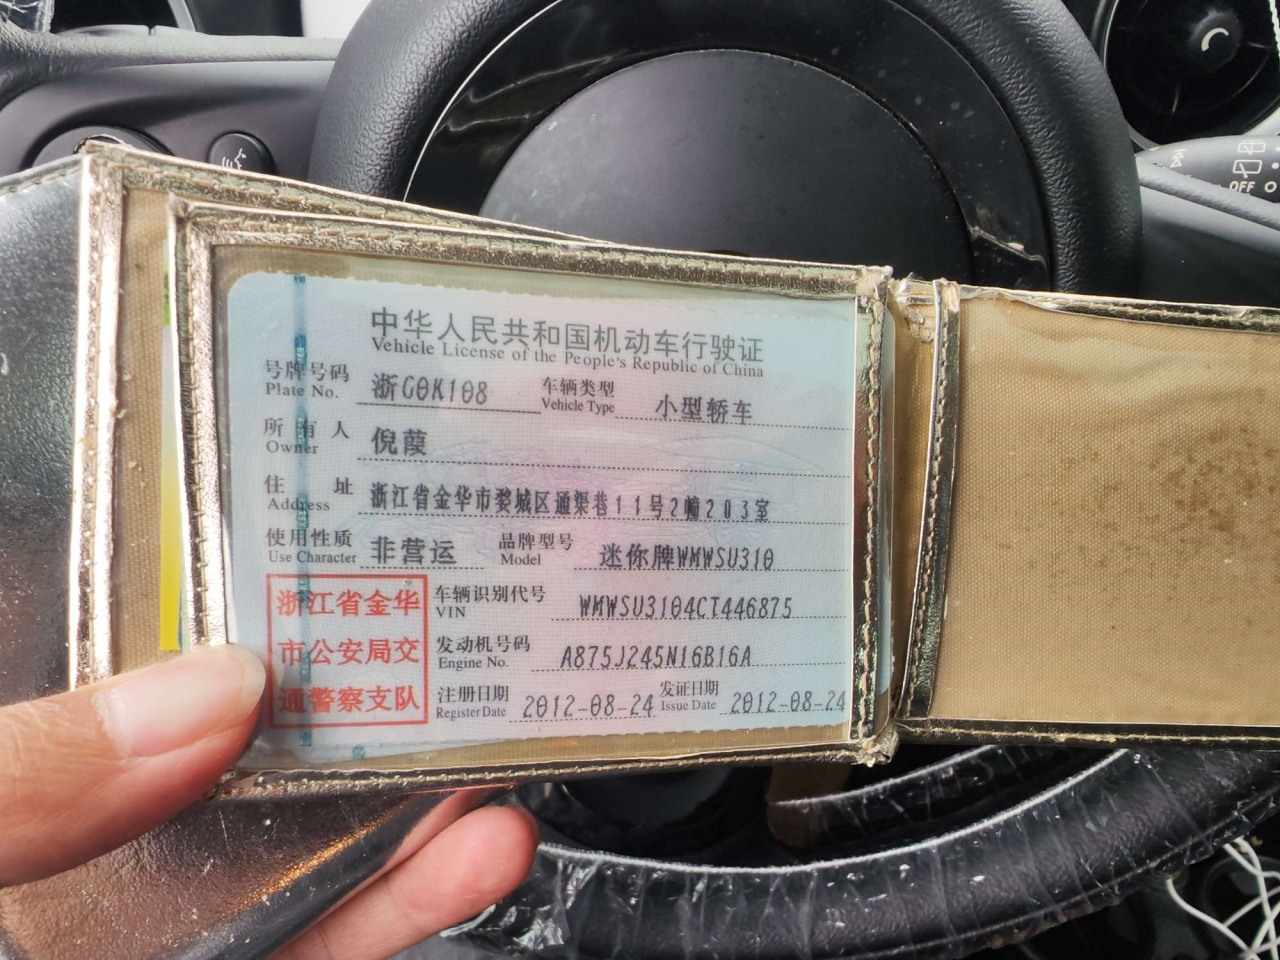 中华人民共和国机动车行驶证
Vehicle License of the People's Republic of China
号牌号码 浙G0K108 车辆类型 小型轿车
Plate No. Vehicle Type
所有人 倪葭
Owner
住址 浙江省金华市婺城区通渠巷11号2幢203室
Address
使用性质 非营运 品牌型号 迷你牌WMWSU310
Use Character Model
浙江省金华
市公安局交
通警察支队
车辆识别代号 WMWSU3104CT446875
VIN
发动机号码 A875J245N16B16A
Engine No.
注册日期 2012-08-24 发证日期 2012-08-24
Register Date Issue Date
OFF